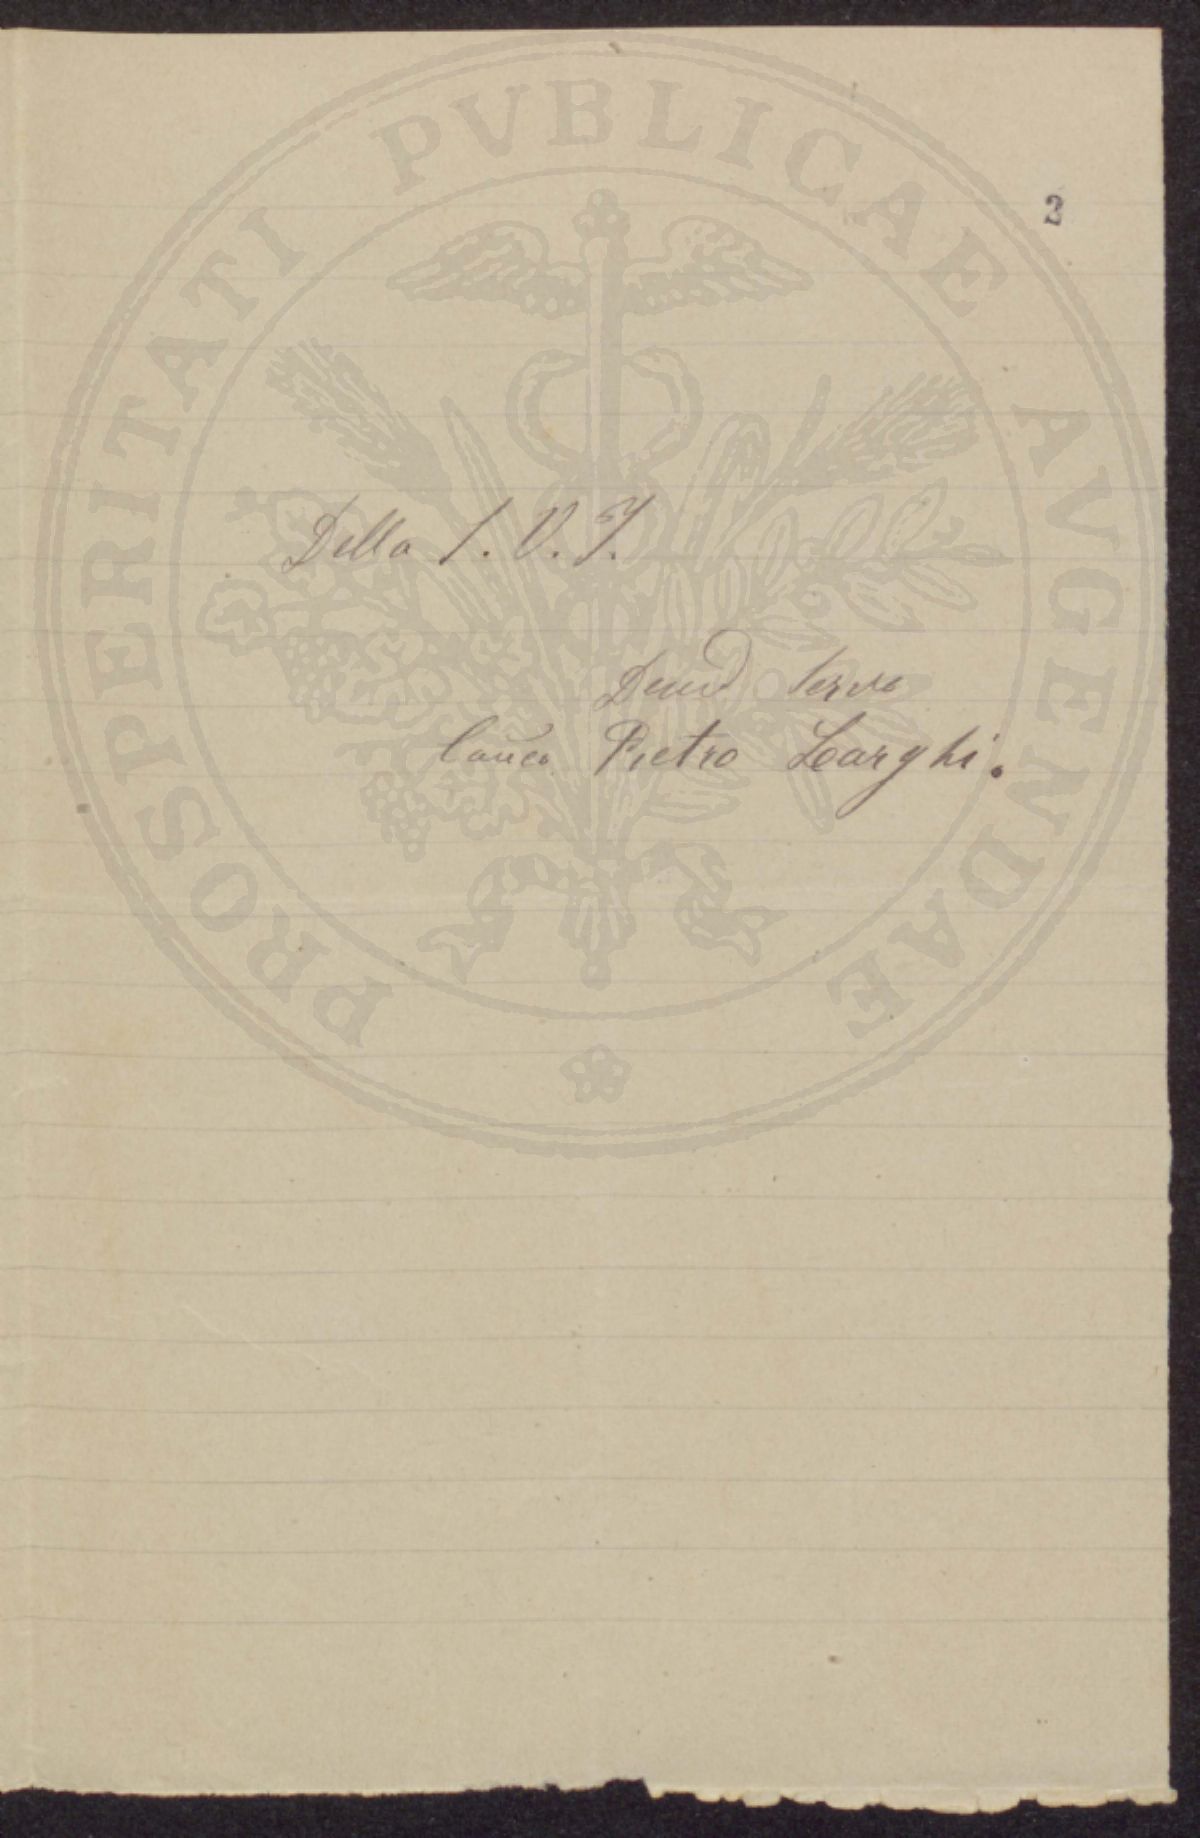 PROSPERITATI PVBLICAE AVGENDAE
2
Della S. V. I.
Servo
Pietro Larghi.